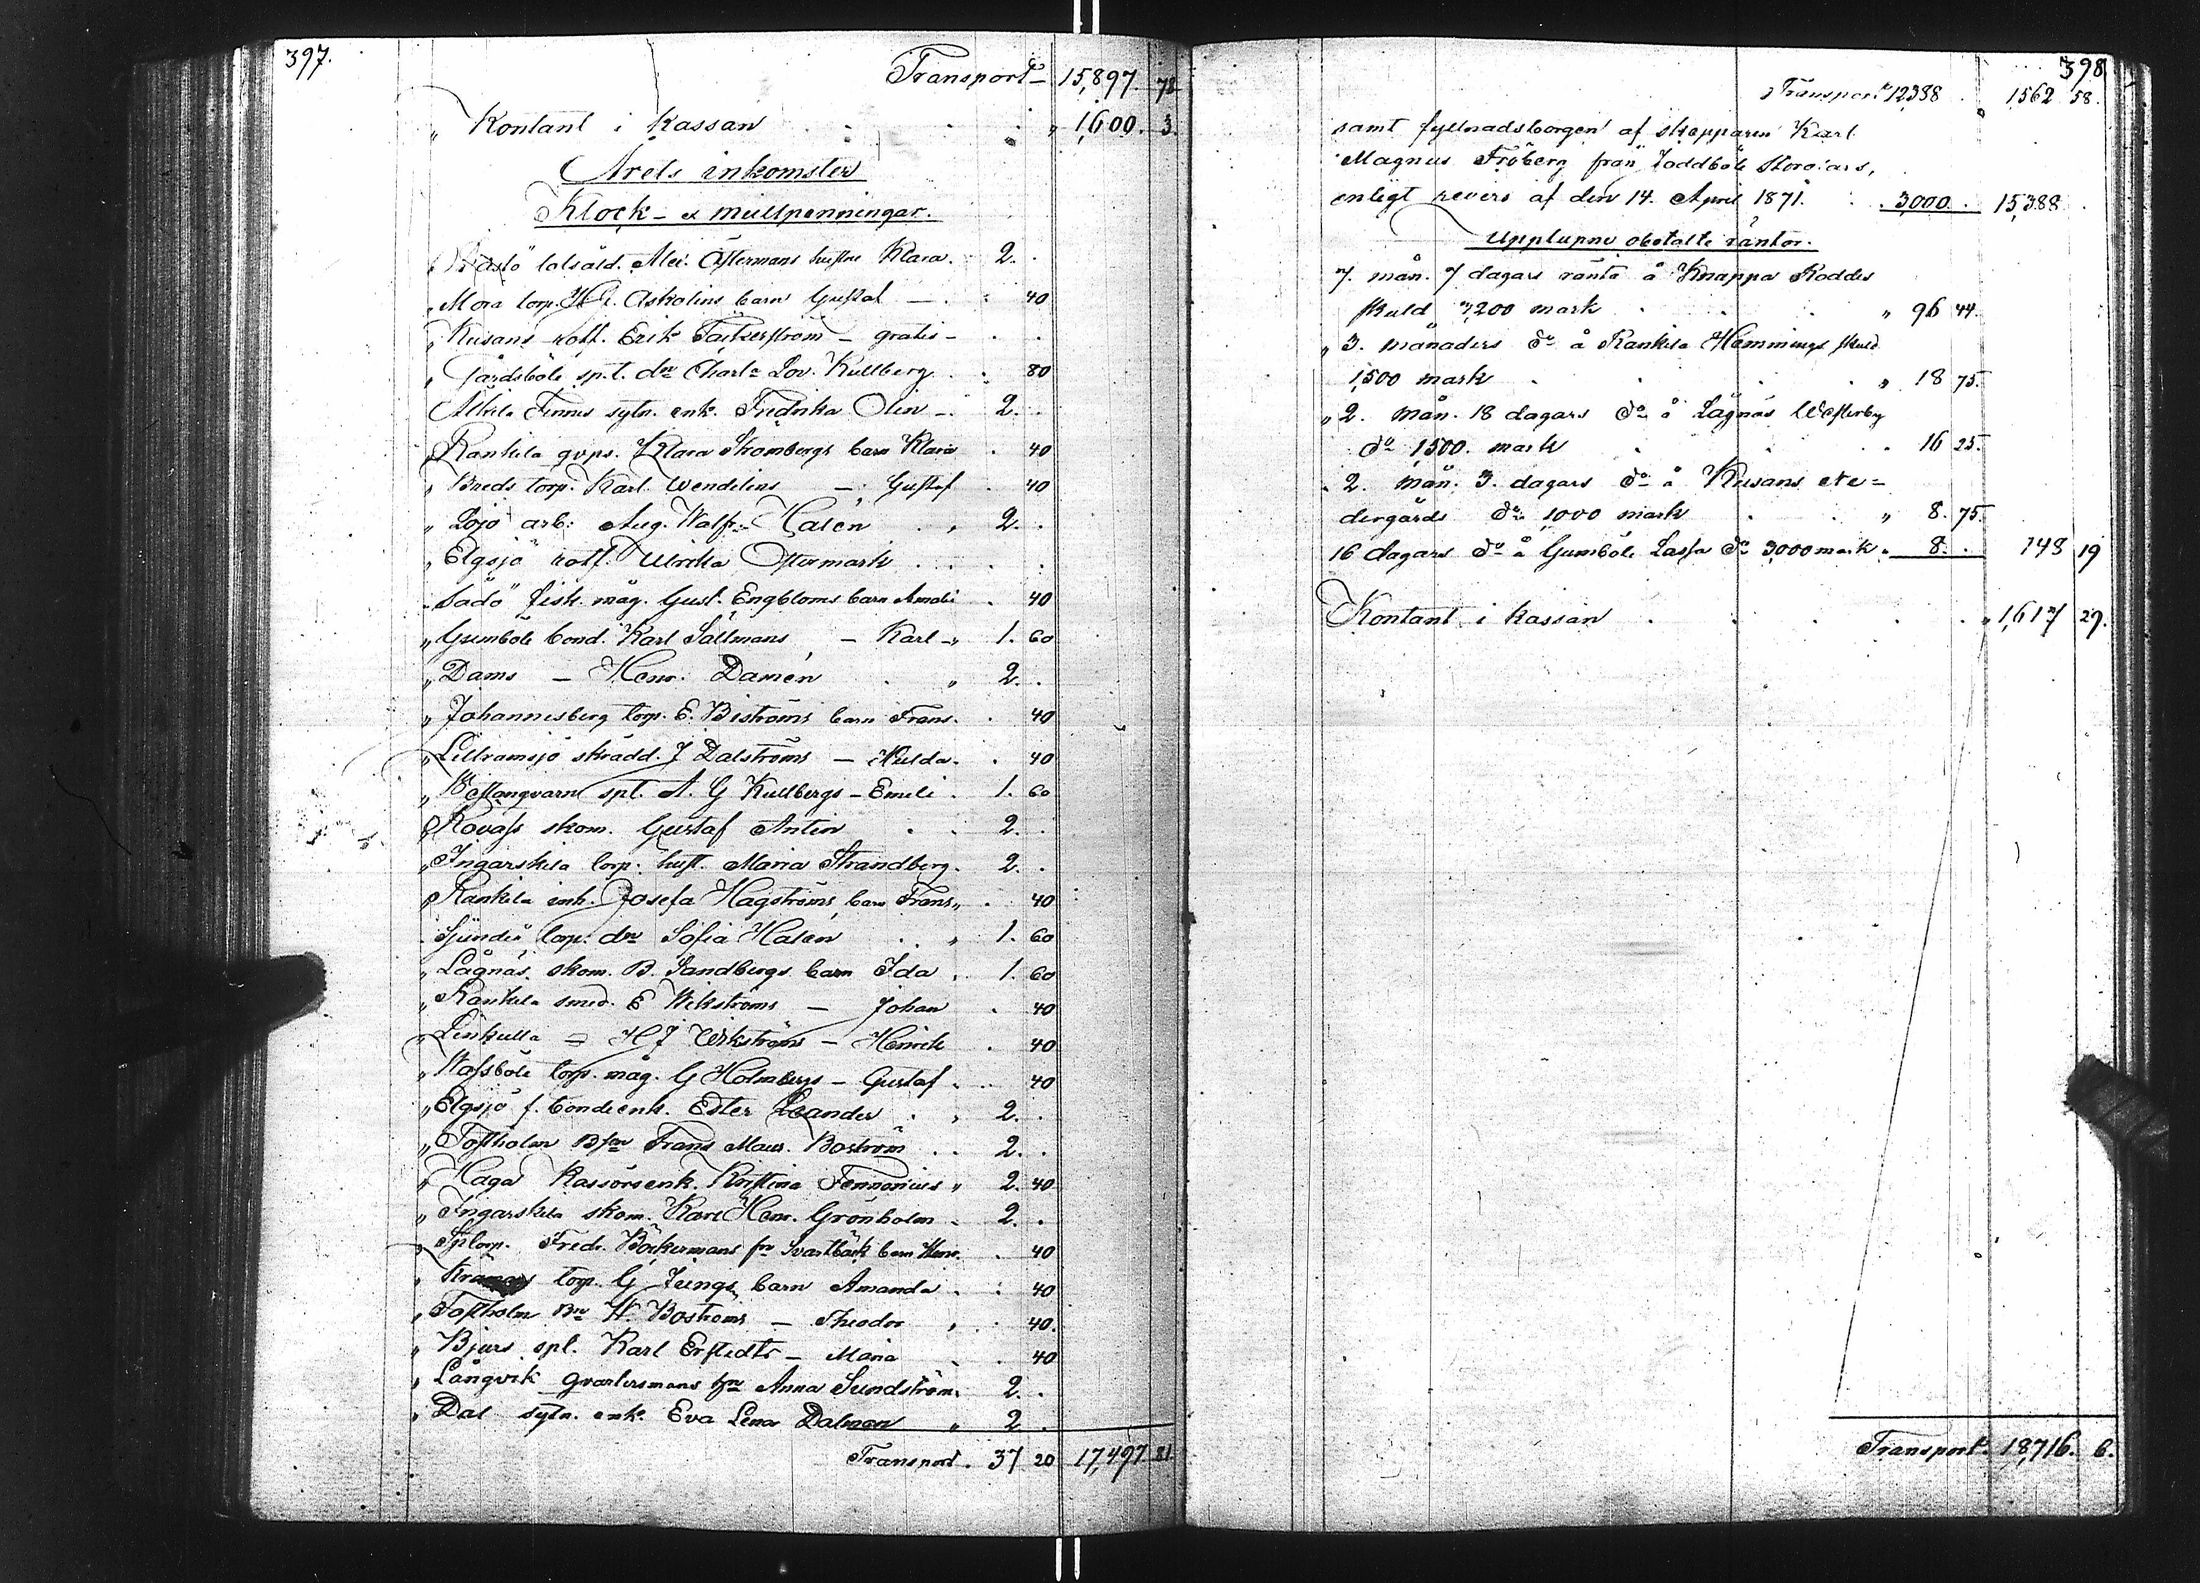 397.
Transport 15,897. 78
" Kontant i kassan " 1,600. 3.
Årets inkomster
Klock- et mullpenningar.
lotsåld. Alex. Östermans hustru Klara. 2. .
" Mora torp. H G. Askolins barn Gustaf — . 40
" Kusans rotf. Erik Täckerström — gratis — . .
" Gårdsböle sp.t. dr Charl. Lov. Kullberg . 80
Alkila Finnes sytn. enk. Fredrika Olin — 2. .
" Rankila gvps. Klara Skombergs barn Klara . 40
" Breds torp. Karl Wendelins — Gustaf . 40
" Lojo arb. Aug. Walfr. Halén " 2. .
" Elgsjö rotf. Ulrika Östermark . . .
" Sådö fisk. måg. Gust. Engbloms barn Amali . 40
" Gumböle bond. Karl Sällmans — Karl — " 1. 60
" Dams — Henr. Damén " 2. .
" Johannesberg torp. E. Biströms barn Frans . 40
" Lillramsjö skrädd. J Dalströms — Hulda . 40
" Westangvarn spl. A. G Kullbergs — Emili . 1. 60
" Rovass skom. Gustaf Antin . . 2. .
" Ingarskila torp. hust. Maria Strandberg . 2. .
" Rankila inh. Josefa Hagströms barn Frans " . 40
Sjundeå torp. dr Sofia Halén . . " 1. 60
" Lågnäs skom. B. Sandbergs barn Ida . 1. 60
" Rankila smed. E Wikströms — Johan . 40
" Linkulla = H J Wikströms — Henrik . 40
" Wassböle torp. måg. G Holmbergs — Gustaf . 40
" Elgsjö f. bondeenk. Ester Leander . " 2. .
" Toftholm Bsn Frans Maur. Boström . . 2. .
" Haga Kassörsenk. Kristina Fennonius " 2. 40
" Ingarskila skom. Karl Henr. Grönholm . 2. .
" Sptorp. Fredr. Böckermans fr Svartbäck barn Henr. . 40
" torp. G Ljungs barn Amanda . . 40
" Toftholm Bn W. Boströms — Theodor " . 40.
" Bjurs spl. Karl Erstedts — Maria . . 40
" Långvik qvartersmans hn Anna Sundström . 2. .
" Dal sytn. enk. Eva Lena Dalman " 2 .
Transport . 37 20 17,497 81
398
Transport 12388 . 1562 58.
samt fyllnadsborgen af skepparen Karl
Magnus Fröberg från Joddböle Storoiars,
enligt revers af den 14. April 1871. . . 3,000. . 15,388 .
Upplupne obetalte räntor.
7. mån. 7 dagars ränta å Knappa Koddes
skuld 3,200 mark . . . " 96 44.
" 3. månaders do å Rankila Hemmings skuld
1,500 mark . . . . " 18 75.
" 2. mån. 18 dagars do å Lågnäs Westerby
do 1,500. mark . . . . 16 25.
" 2. mån. 3. dagars do å Kusans Ne=
dergårds do 1,000 mark . . " 8. 75.
16 dagars do å Gumböle Lassa do 3,000 mark . 8. . 148 19
Kontant i kassan . . . . " 1,617 29.
Transport. 18,716. 6.